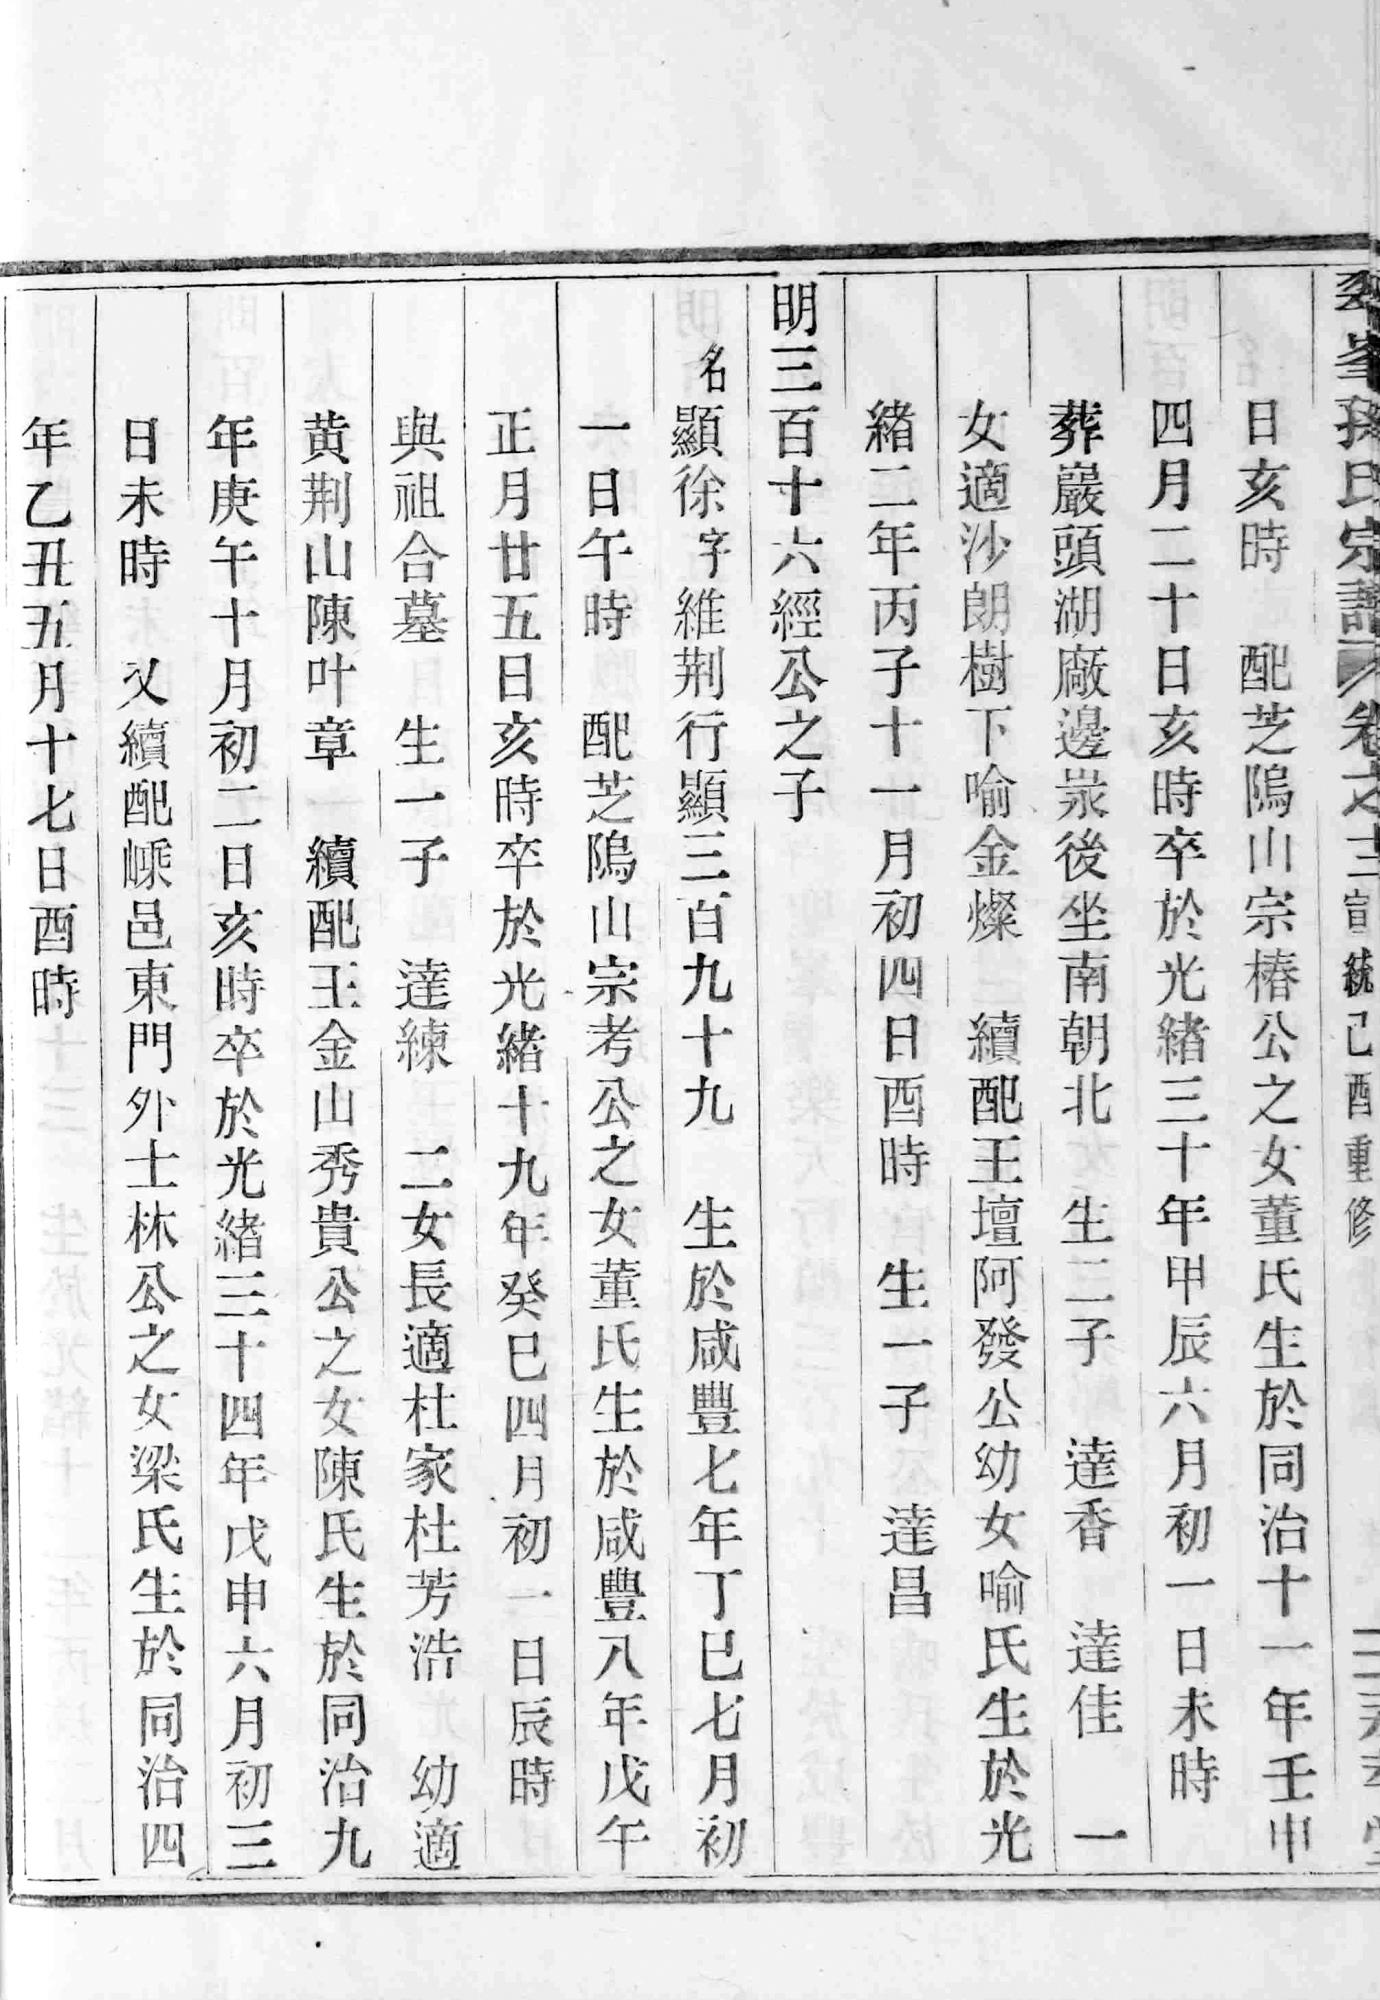 峯孫氏宗譜 卷之十三 宣統己酉重修
日亥時 配芝隖山宗椿公之女董氏生於同治十一年壬申
四月二十日亥時卒於光緒三十年甲辰六月初一日未時
葬巖頭湖廠邊泶後坐南朝北 生三子 達香 達佳 一
女適沙朗樹下喻金燦 續配王壇阿發公幼女喻氏生於光
緒二年丙子十一月初四日酉時 生一子 達昌
明三百十六經公之子
名顯徐字維荆行顯三百九十九 生於咸豐七年丁巳七月初
一日午時 配芝隖山宗考公之女董氏生於咸豐八年戊午
正月廿五日亥時卒於光緒十九年癸巳四月初一日辰時
與祖合墓 生一子 達練 二女長適杜家杜芳浩 幼適
黄荆山陳叶章 續配王金山秀貴公之女陳氏生於同治九
年庚午十月初二日亥時卒於光緒三十四年戊申六月初三
日未時 又續配嵊邑東門外士林公之女梁氏生於同治四
年乙丑五月十七日酉時